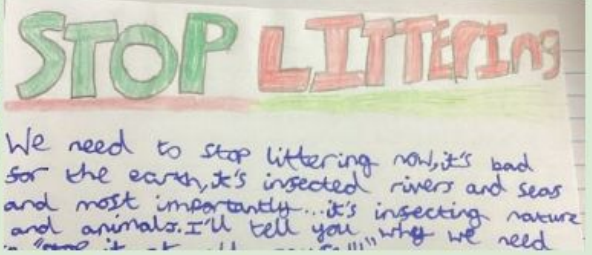 STOP LITTERING
We need to stop littering now,it's bad
for the earth,it's insected rivers and seas
and most importantly...it's insecting nature
and animals.I'll tell you why we need